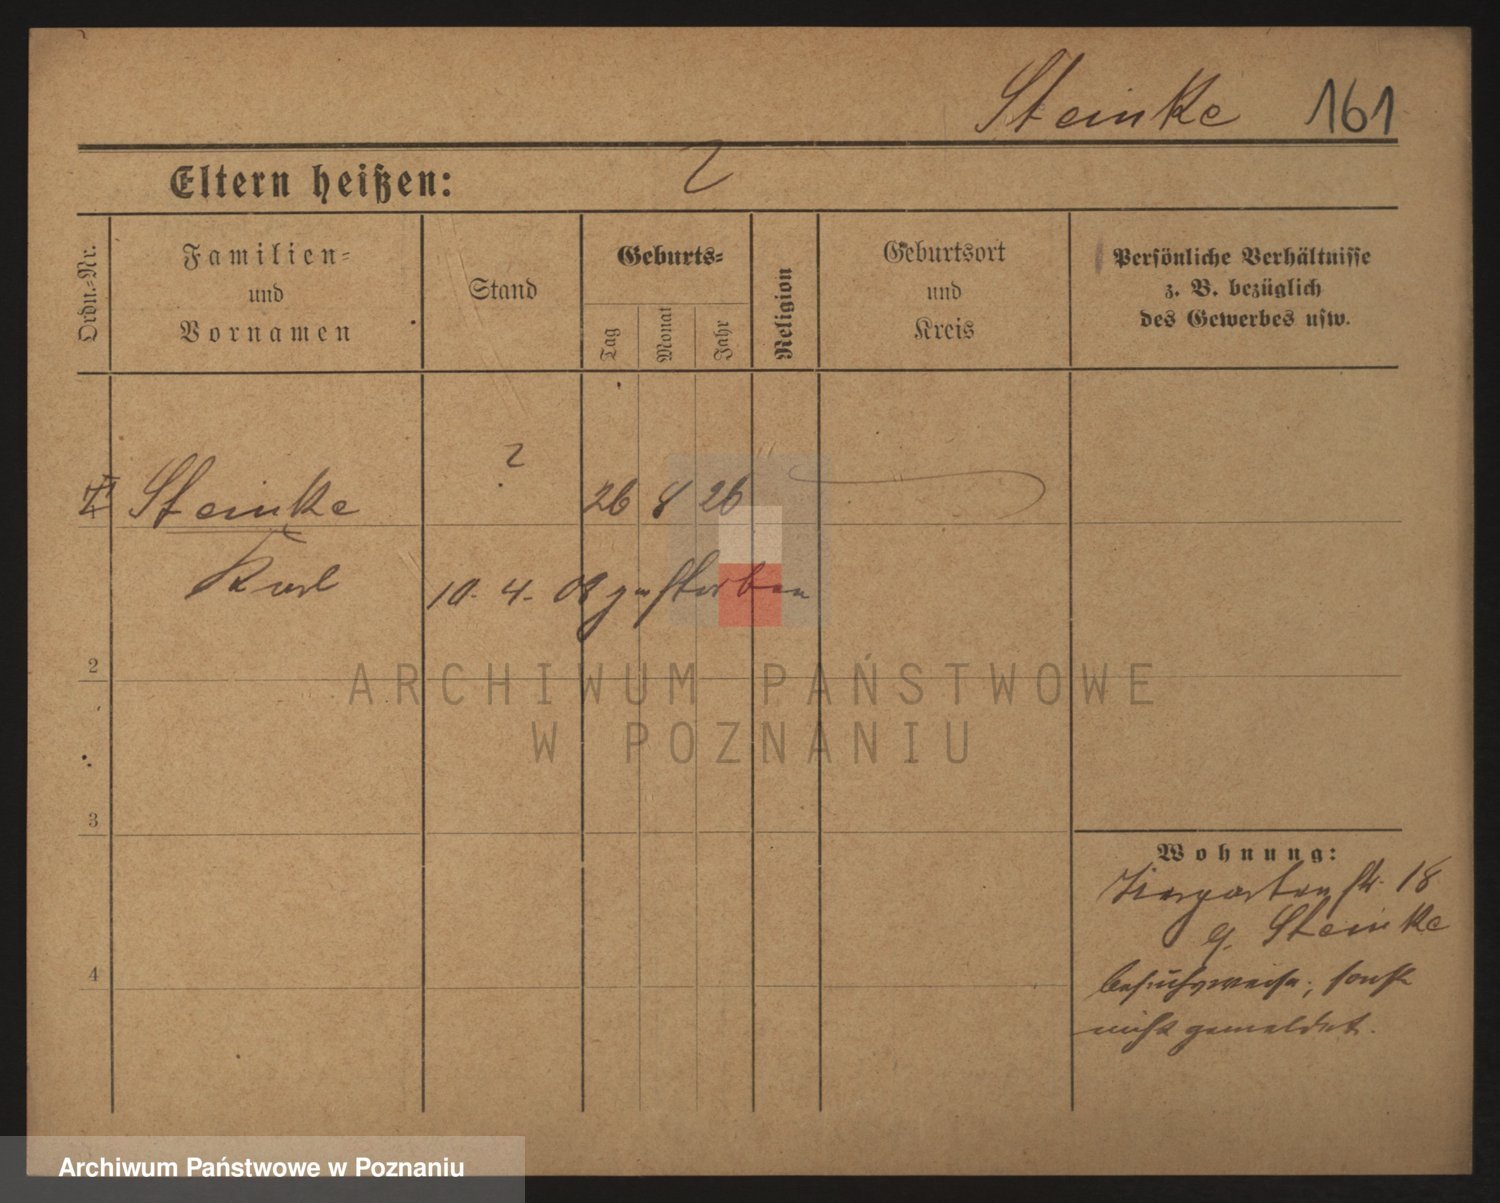 Steinke 161
Eltern heißen: ?
Ordn.-Nr.
Familien-
und
Vornamen
Stand
Geburts-
Tag
Monat
Jahr
Religion
Geburtsort
und
Kreis
Persönliche Verhältnisse
z. B. bezüglich
des Gewerbes usw.
Steinke ? 26 8 26
Karl 10. 4. 08 gestorben
2
3
4
Wohnung:
Tiergartenstr. 18
Steinke
besuchsweise, sonst
nicht gemeldet.
ARCHIWUM PAŃSTWOWE
W POZNANIU
Archiwum Państwowe w Poznaniu